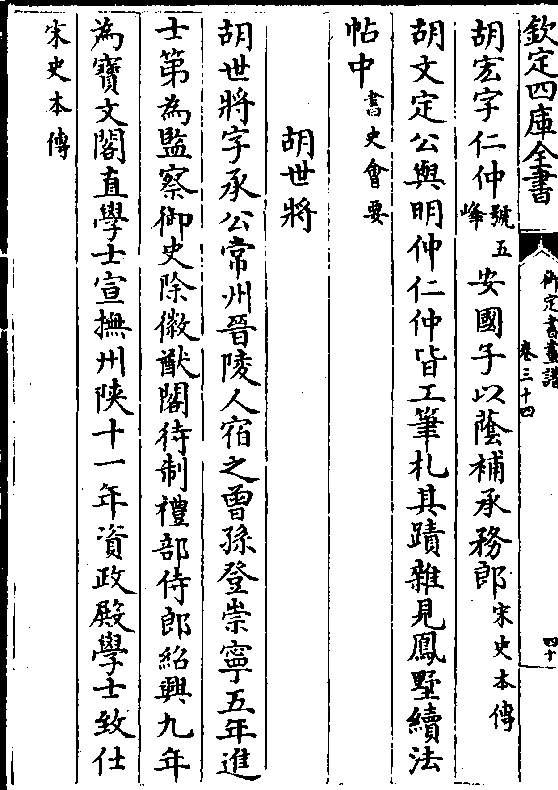 欽定四庫全書
御定書畫譜
卷三十四
四十
胡宏字仁仲號五峰安國子以蔭補承務郎宋史本傳
胡文定公與明仲仁仲皆工筆札其蹟雜見鳳墅續法
帖中書史會要
胡世將
胡世將字承公常州晉陵人宿之曾孫登崇寧五年進
士第為監察御史除徽猷閣待制禮部侍郎紹興九年
為寶文閣直學士宣撫州陝十一年資政殿學士致仕
宋史本傳